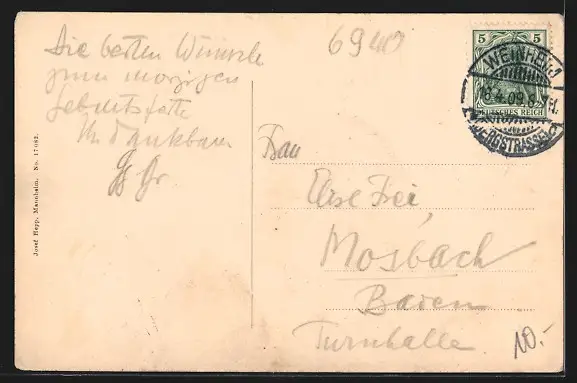 Die besten Wünsche
zum morgigen
Geburtsfeste
Ihr dankbarer
6940
5 5
DEUTSCHES REICH
WEINHEIM
8.4.09.
(BERGSTRASSE)
Frau
Else Frei,
Mosbach
Baden
Turnhalle
10.-
Josef Hepp, Mannheim. No. 17082.